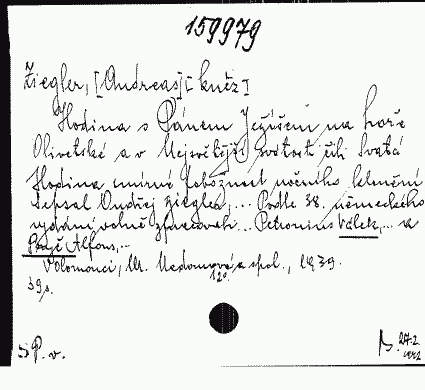 159979
Žiegler, [Andreas] [kněz]
Hodina s Pánem Ježíšem na hoře
Olivetské a v Nejsvětější svátosti čili Svatá
Hodina umírně pobožnost nočního klanění
Sepsal Ondřej Ziegler, ... Podle 38. německého
vydání volně zpracovali ... Petronius Válek, ... a
Alfons, ...
V Olomouci, a spol., 1939.
12°.
39 s.
5 P. v.